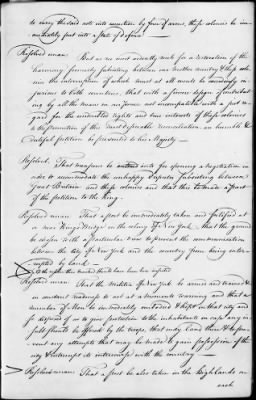 to carry the said acts into execution by force of arms, these colonies be im-
mediately put into a state of defence
Resolved unan: But as we most ardently wish for a restoration of the
harmony formerly subsisting between our mother country & these colo-
nies the interruption of which must at all events be exceedingly in-
jurious to both countries, that with a sincere design of contribut-
ing by all the means in our power not incompatible with a just re-
gard for the undoubted rights and true interests of these colonies
to the promotion of this most desireable reconciliation an humble &
dutiful petition be presented to his Majesty
Resolved, That measures be entered into for opening a negotiation in
order to accommodate the unhappy disputes subsisting between
Great Britain and these colonies and that this be made a part
of the petition to the King
Resolved unan: That a post be immediately taken and fortified at
or near Kings Bridge in the colony of New York, that the ground
be chosen with a particular view to prevent the communication
between the city of New York and the country from being inter-
rupted by land
Resolved unan: That the militia of New York be armed and trained &
in constant readiness to act at a moments warning and that a
number of Men be immediately embodied & kept in that city and so
disposed of as to give protection to the inhabitants in case any in-
sult should be offered by the troops, that may land there & to pre-
vent any attempts that may be made to gain possession of the
city & interrupt its intercourse with the country
Resolved unan: That a post be also taken in the highlands on
each